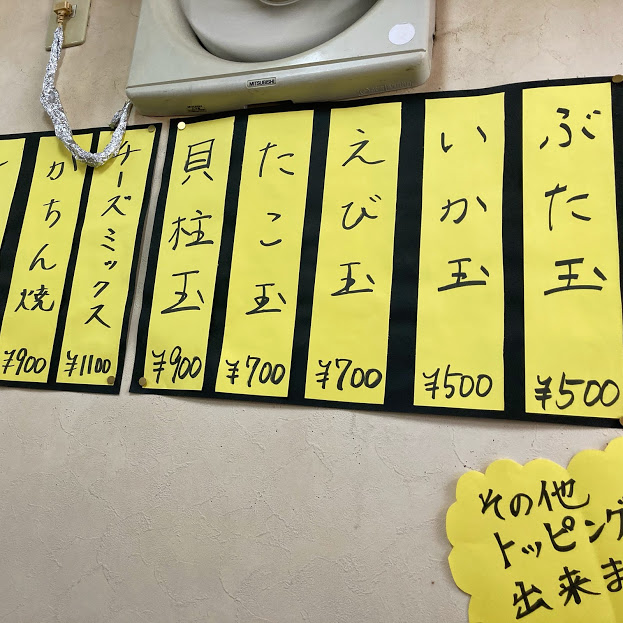 MITSUBISHI
ぶた玉
¥500
いか玉
¥500
えび玉
¥700
たこ玉
¥700
貝柱玉
¥900
チーズミックス
¥1100
かちん焼
¥900
その他
トッピング
出来ま